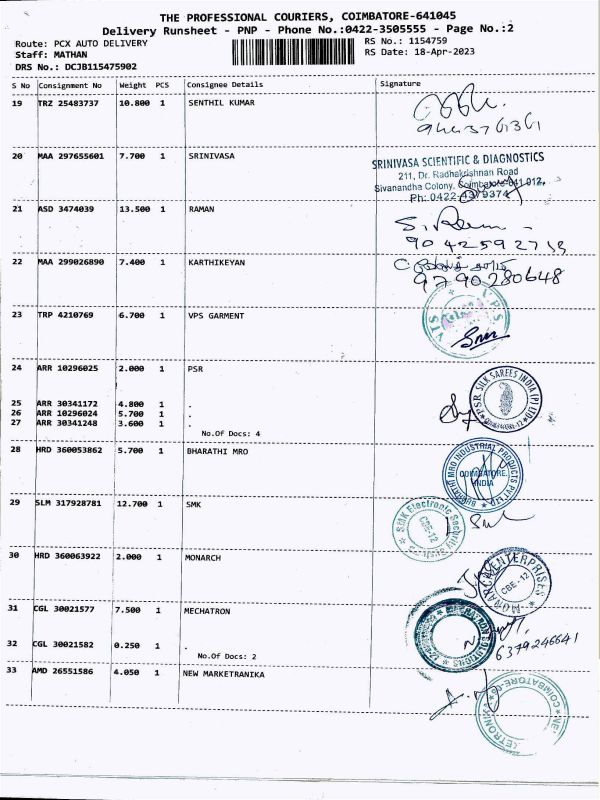 THE PROFESSIONAL COURIERS, COIMBATORE-641045
Delivery Runsheet - PNP - Phone No.:0422-3505555 - Page No.:2
Route: PCX AUTO DELIVERY
Staff: MATHAN
DRS No.: DCJB115475902
RS No.: 1154759
RS Date: 18-Apr-2023
S No Consignment No Weight PCS Consignee Details Signature
19 TRZ 25483737 10.800 1 SENTHIL KUMAR
20 MAA 297655601 7.700 1 SRINIVASA
SRINIVASA SCIENTIFIC & DIAGNOSTICS
211, Dr. Radhakrishnan Road
Sivanandha Colony, Coimbatore-641 012.
21 ASD 3474039 13.500 1 RAMAN
22 MAA 299026890 7.400 1 KARTHIKEYAN
9790280648
23 TRP 4210769 6.700 1 VPS GARMENT
24 ARR 10296025 2.000 1 PSR
PSR SILK SAREES INDIA (P) LTD
25 ARR 30341172 4.800 1 .
26 ARR 10296024 5.700 1 .
27 ARR 30341248 3.600 1 .
No.Of Docs: 4
28 HRD 360053862 5.700 1 BHARATHI MRO
BHARATHI MRO INDUSTRIAL PRODUCTS PVT LTD
COIMBATORE.
INDIA
29 SLM 317928781 12.700 1 SMK
SMK Electronic Security
CBE-12
30 HRD 360063922 2.000 1 MONARCH
MONARCH ENTERPRISES
CBE - 12
31 CGL 30021577 7.500 1 MECHATRON
6379246641
32 CGL 30021582 0.250 1 .
No.Of Docs: 2
33 AMD 26551586 4.050 1 NEW MARKETRANIKA